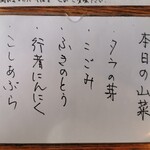 本日の山菜
・タラの芽
・こごみ
・ふきのとう
・行者にんにく
・こしあぶら